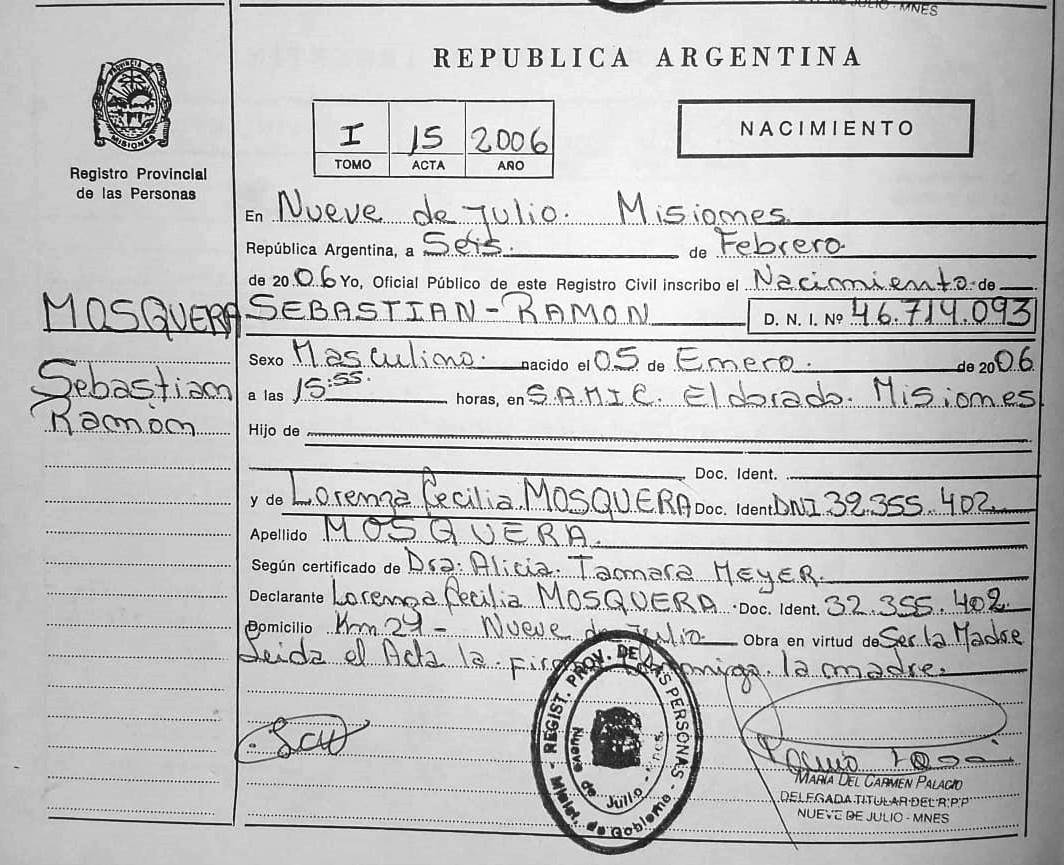 JULIO - MNES
REPUBLICA ARGENTINA
PROVINCIA DE
MISIONES
Registro Provincial
de las Personas
I 15 2006
TOMO ACTA AÑO
NACIMIENTO
En Nueve de Julio. Misiones
República Argentina, a Seis. de Febrero.
de 2006 Yo, Oficial Público de este Registro Civil inscribo el Nacimiento de
MOSQUERA SEBASTIAN-RAMON D. N. I. Nº 46.714.093
Sebastian
Ramón
Sexo Masculino. nacido el 05 de Enero. de 2006
a las 15:55. horas, en S.A.M.I.C. Eldorado. Misiones
Hijo de
Doc. Ident.
y de Lorenza Cecilia MOSQUERA Doc. Ident. DNI 32.355.402
Apellido MOSQUERA.
Según certificado de Dra. Alicia. Tamara MEYER.
Declarante Lorenza Cecilia MOSQUERA. Doc. Ident. 32.355.402
Domicilio Km 29 - Nueve de Julio. Obra en virtud de Ser la Madre
Leida el Acta la firma Conmigo la madre.
REGIST. PROV. DE LAS PERSONAS
Nueve de Julio - Mnes.
Minist. de Gobierno
MARIA DEL CARMEN PALACIO
DELEGADA TITULAR DEL R.P.P
NUEVE DE JULIO - MNES